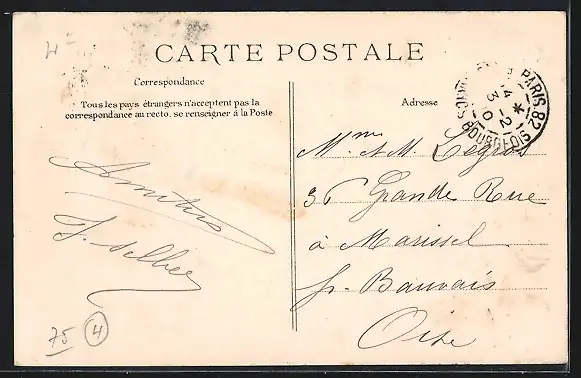 CARTE POSTALE
Correspondance
Tous les pays étrangers n'acceptent pas la
correspondance au recto, se renseigner à la Poste
Adresse
PARIS 82
FRANCS BOURGEOIS
Amitiés
Mme & M. Legros
36 Grande Rue
à Marissel
pr. Bauvais
Oise
75
4